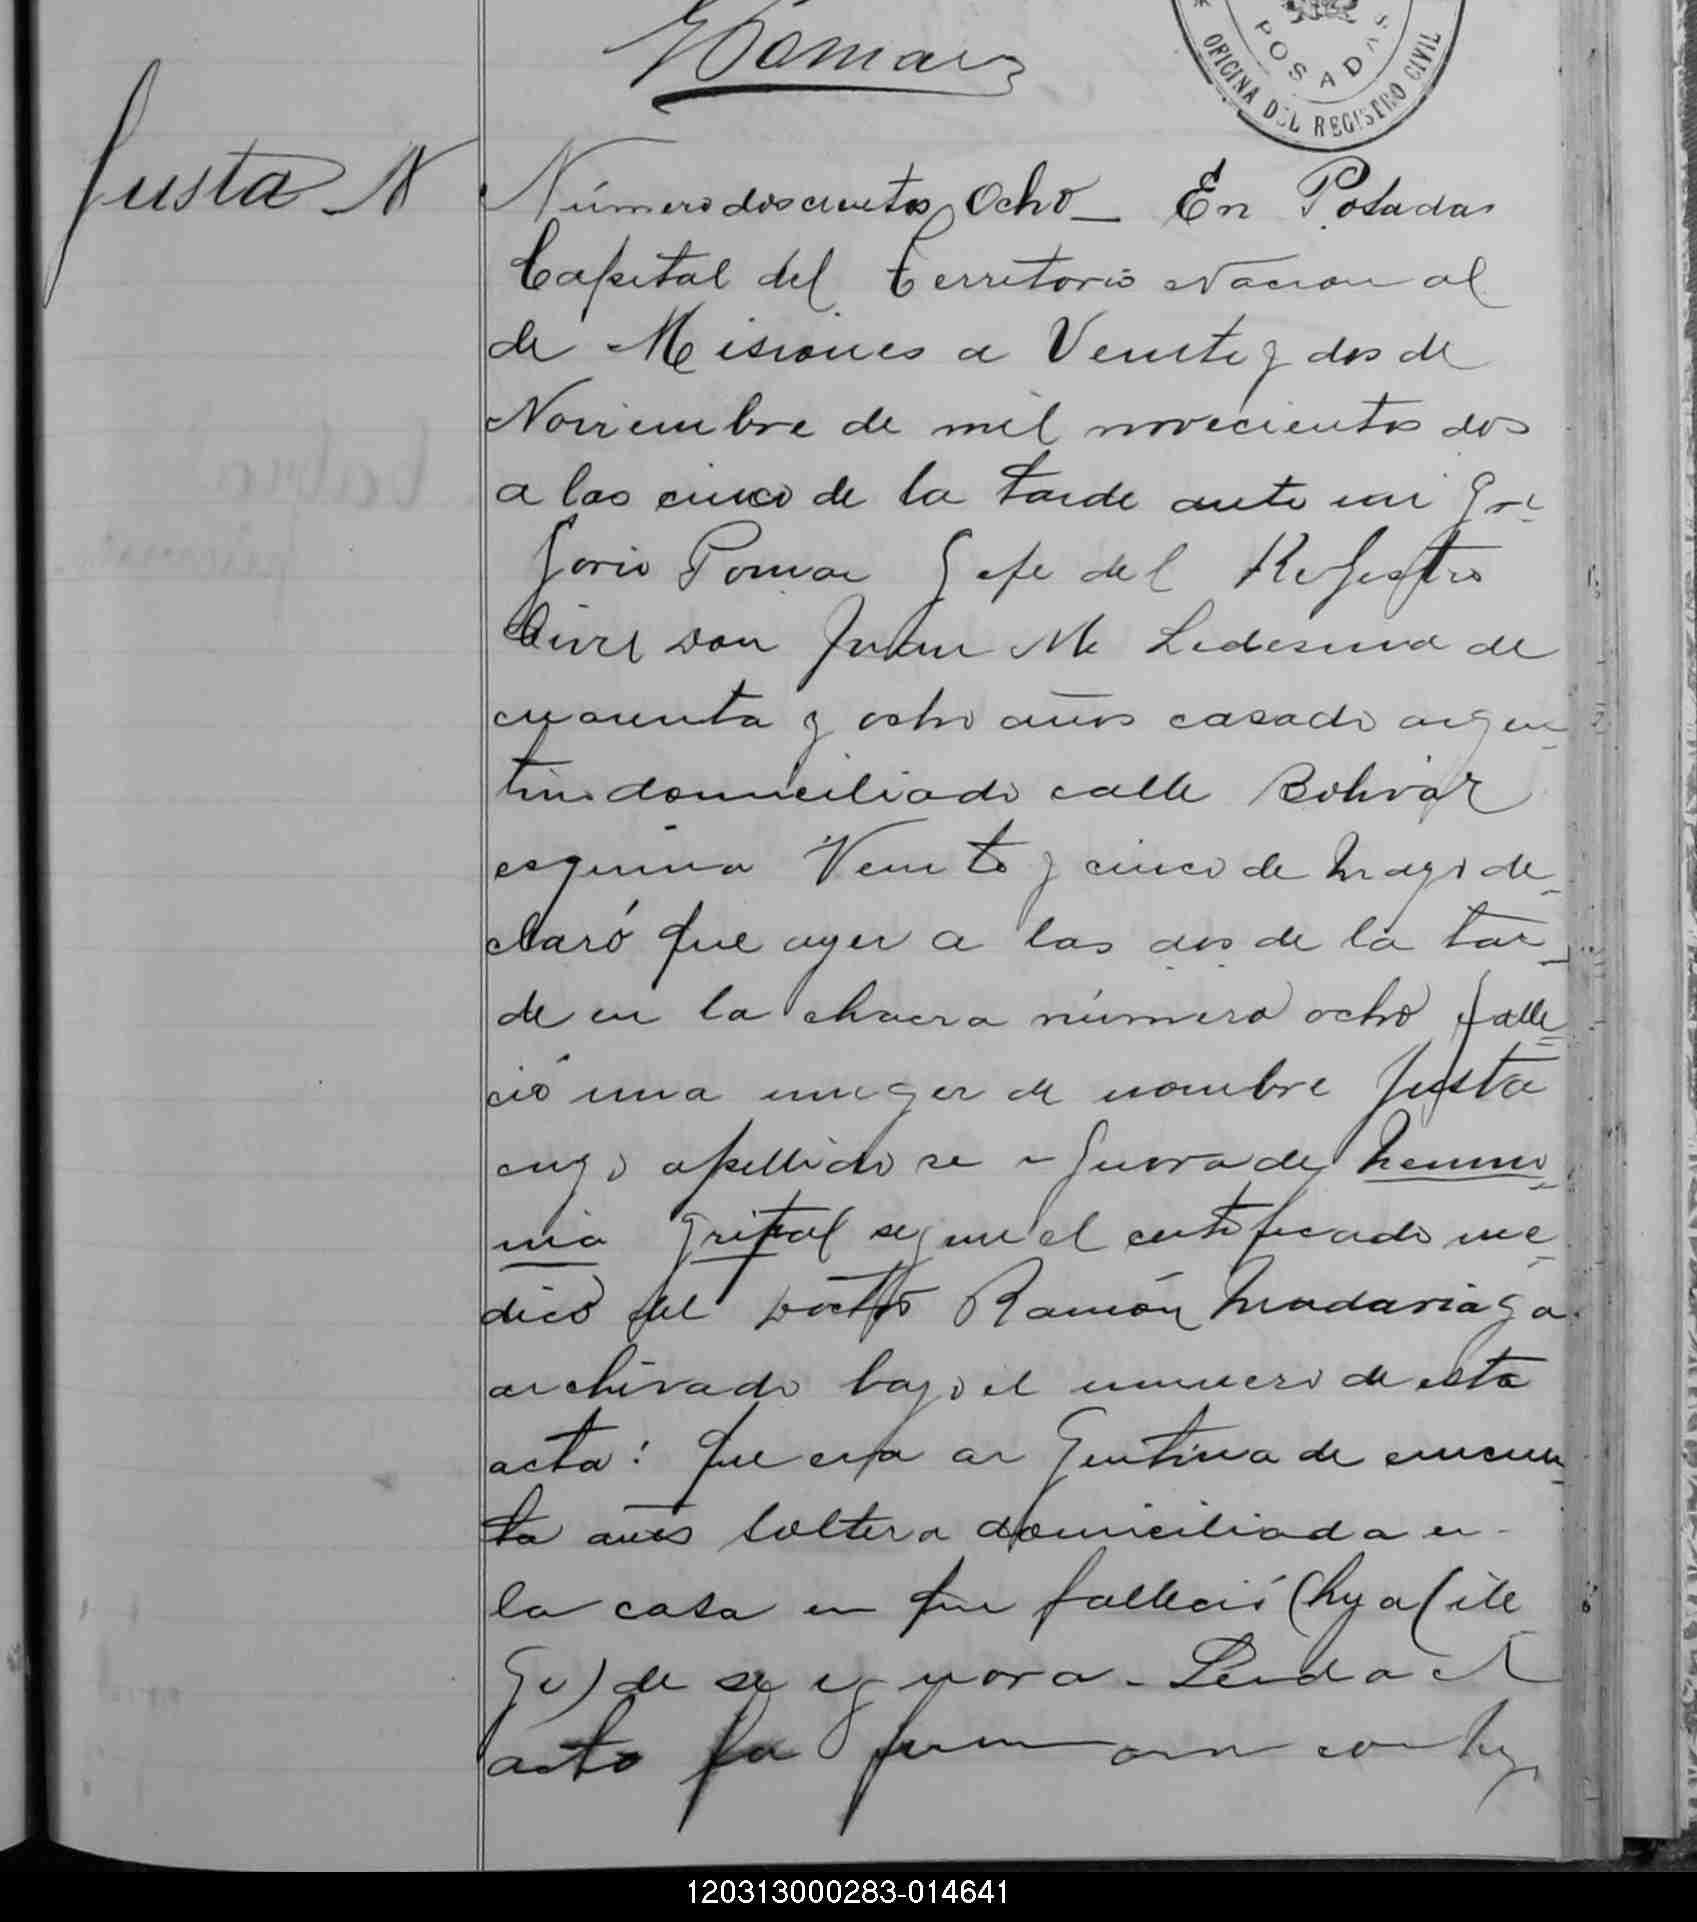 GPomar
POSADAS
OFICINA DEL REGISTRO CIVIL
Justa N
Número doscientos ocho_ En Posadas
Capital del Territorio Nacional
de Misiones a Veinte y dos de
Noviembre de mil novecientos dos
a las cinco de la tarde ante mi Gre-
gorio Pomar Gefe del Registro
Civil Don Juan M Ledesma de
cuarenta y ocho años casado argen-
tino domiciliado calle Bolivar
esquina Veinte y cinco de Mayo de-
claró que ayer a las dos de la tar-
de en la chacra número ocho falle=
ció una muger de nombre Justa
cuyo apellido se ignora de Neumo=
nia Gripal segun el certificado me-
dico del Doctor Ramón Madariaga
archivado bajo el numero de esta
acta: que era argentina de cincuen-
ta años soltera domiciliada en
la casa en que falleció (hya (ile
ge) de se ignora - Leida el
acta la firmaron conmigo
120313000283-014641